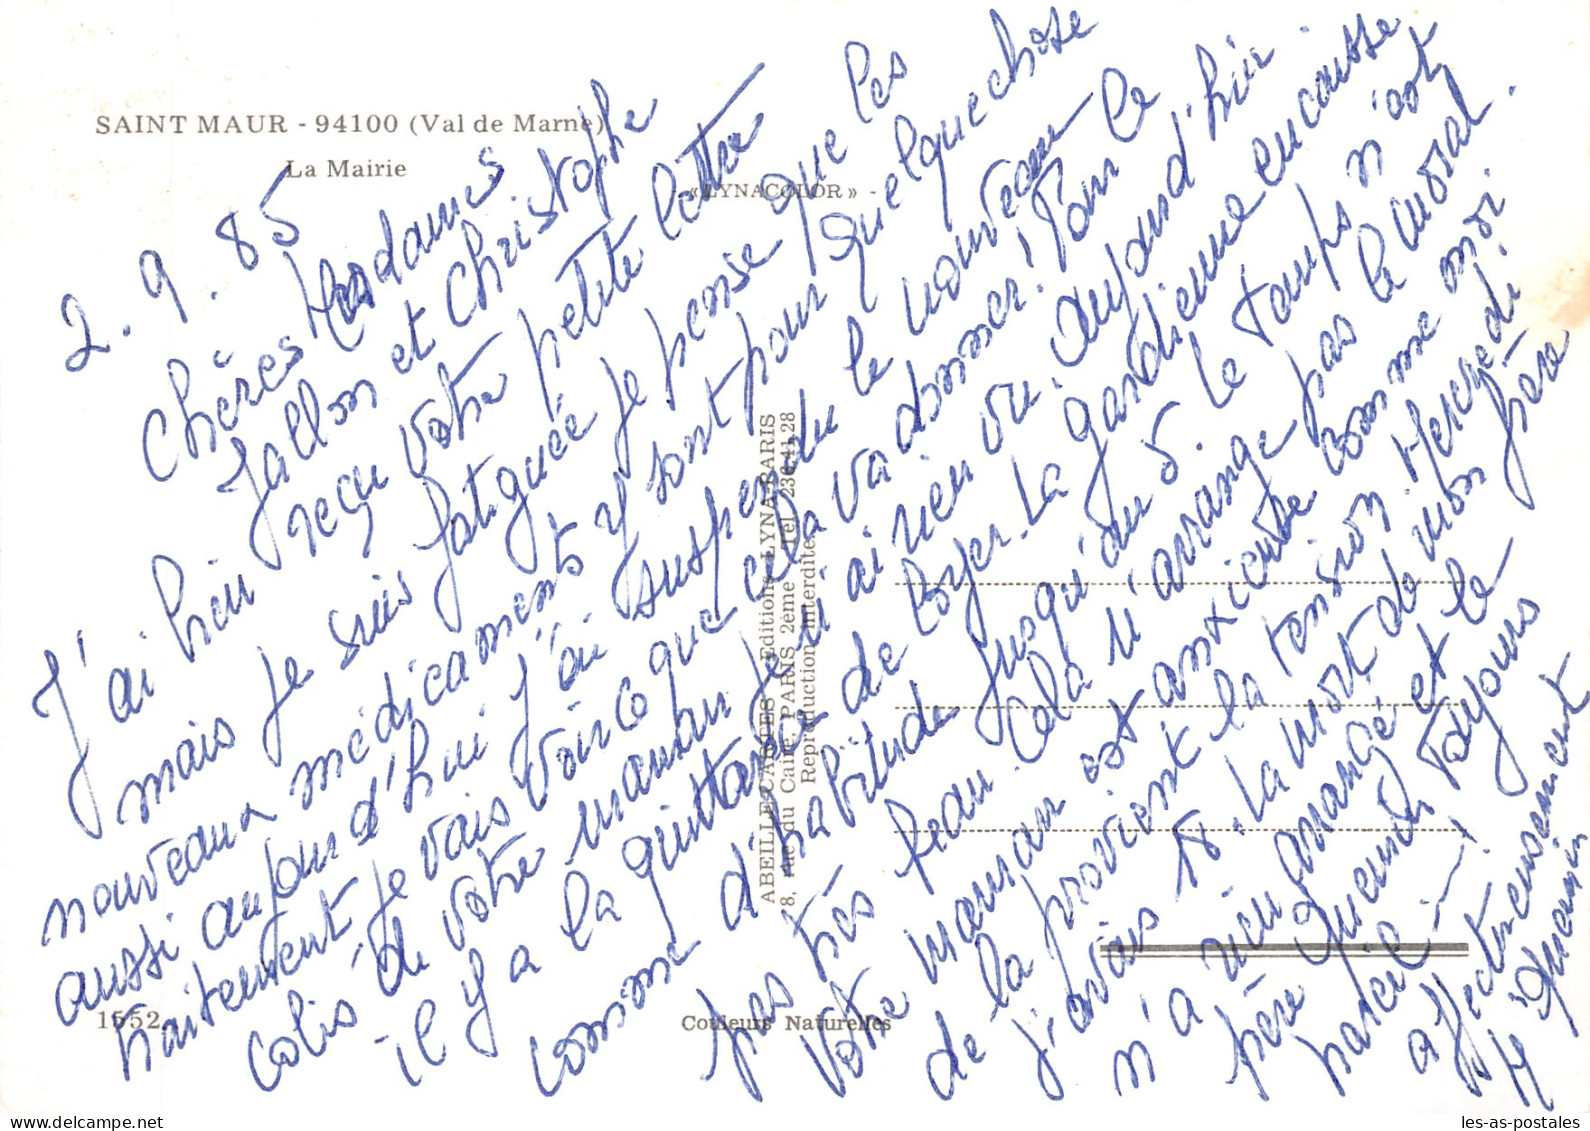 SAINT MAUR - 94100 (Val de Marne)
La Mairie
- «LYNACOLOR» -
2. 9. 85
Chères Mesdames
Jallon et Christophe
J'ai bien reçu votre petite lettre
mais je suis fatiguée je pense que les
nouveaux médicaments y sont pour quelque chose
aussi aujourd'hui j'ai suspendu le nouveau
traitement je vais voir ce que cela va donner! Pour le
colis de votre maman je n'ai rien vu. aujourd'hui
il y a la quittance de loyer. La gardienne encaisse
comme d'habitude jusqu'au 5. Le temps n'est
pas très beau. Cela n'arrange pas le moral.
Votre maman est anxieuse comme moi
de la provient la tension Mercredi
j'avais 18. La mort de mon frère
n'a rien arrangé et le
père Quemin toujours
pareil
affectueusement
M Quemin
ABEILLE-CARTES - Editions LYNA-PARIS
8, rue du Caire, PARIS 2ème Tel 236-41-28
Reproduction interdite.
1552.
Couleurs Naturelles
les-as-postales